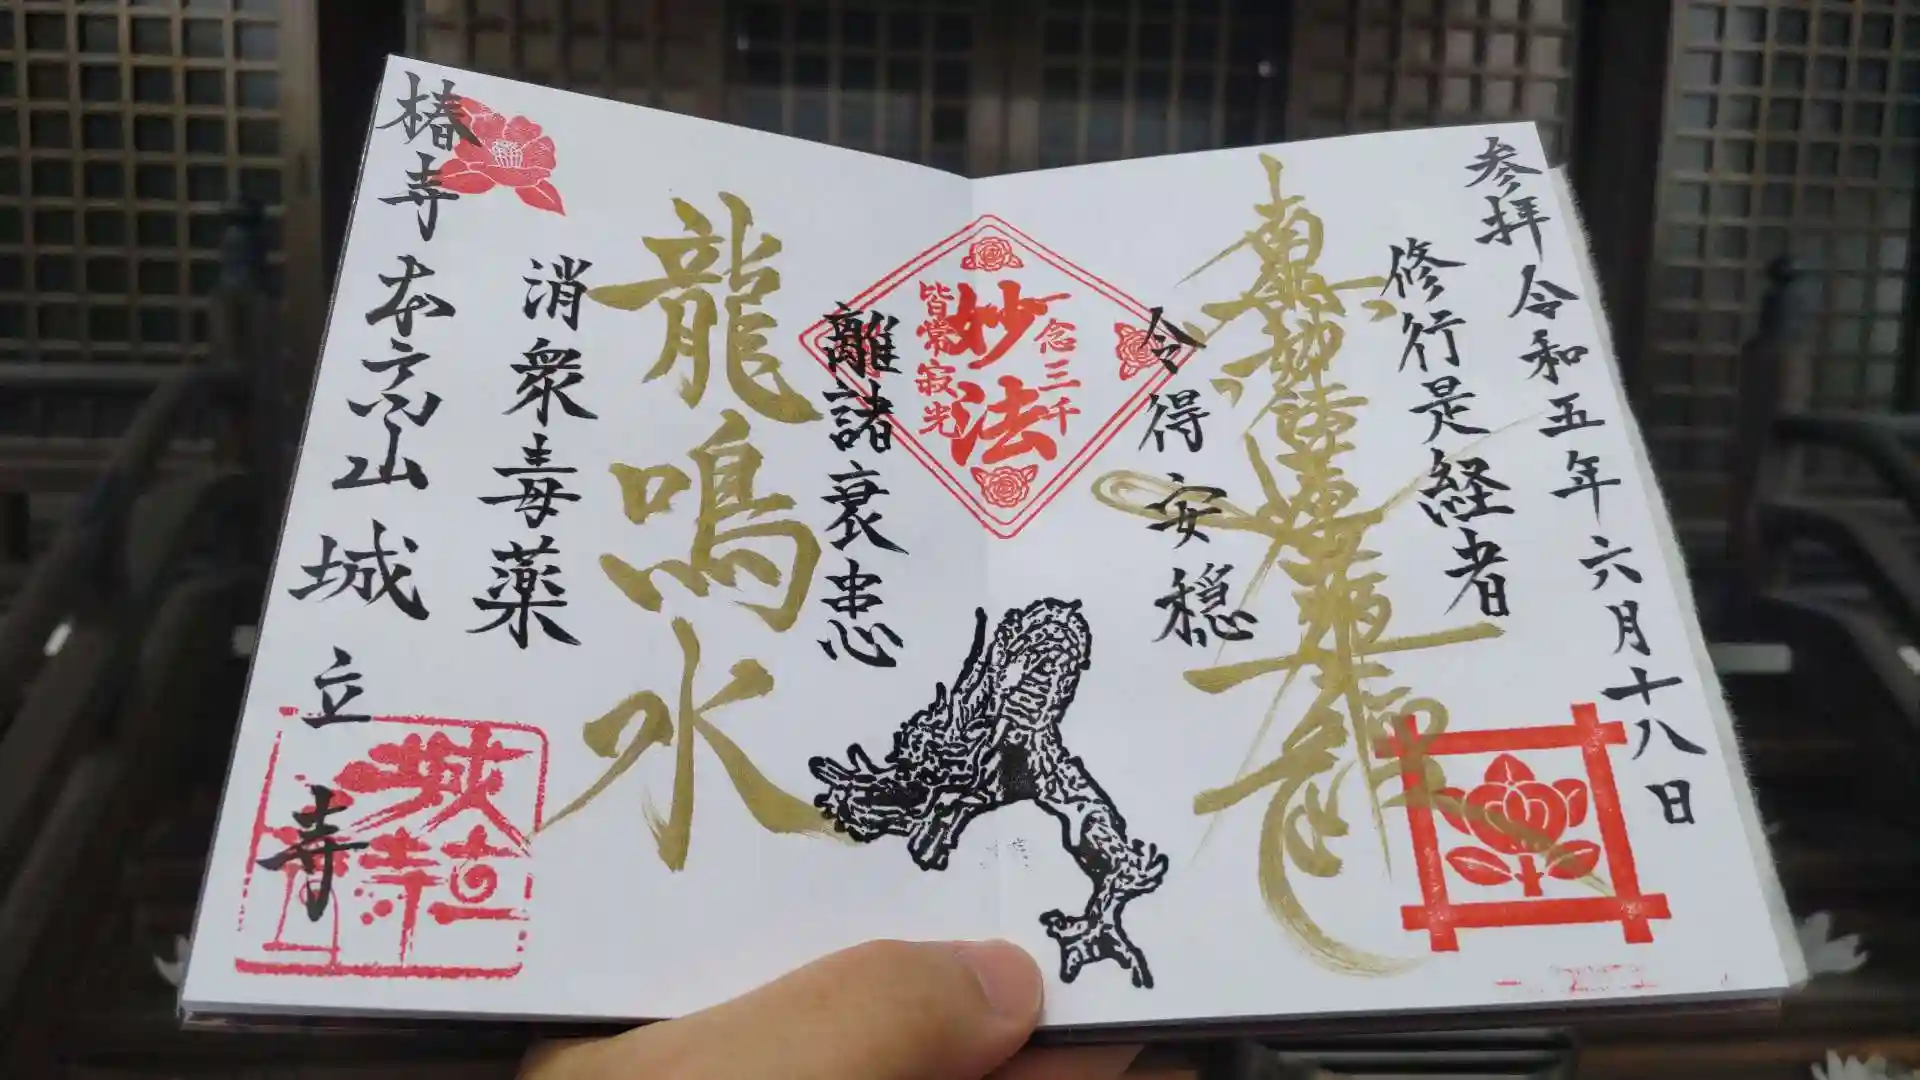 参拝 令和五年六月十八日
修行是経者
南無妙法蓮華経
令得安穏
一念三千
妙法
皆常寂光
離諸衰患
龍鳴水
消衆毒薬
椿寺 本高山 城立寺
城立寺